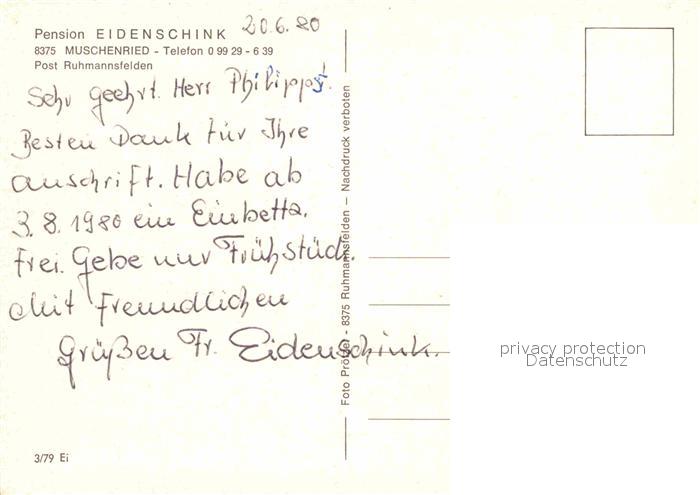 Pension EIDENSCHINK 20.6.80
8375 MUSCHENRIED - Telefon 0 99 29 - 6 39
Post Ruhmannsfelden
Sehr geehrt. Herr Philipp
Besten Dank für Ihre
Anschrift. Habe ab
3.8.1980 ein Einbettz.
frei. Gebe nur Frühstück.
Mit Freundlichen
Grüßen Fr. Eidenschink.
3/79 Ei
8375 Ruhmannsfelden — Nachdruck verboten
Foto
privacy protection
Datenschutz